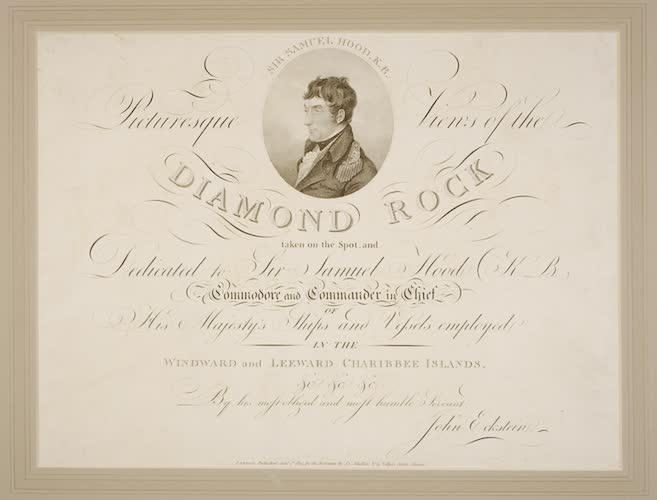 SIR SAMUEL HOOD, K.B.
Picturesque Views of the
DIAMOND ROCK
taken on the Spot, and
Dedicated to Sir Samuel Hood K B
Commodore and Commander in Chief
OF
His Majesty's Ships and Vessels employed
IN THE
WINDWARD and LEEWARD CHARIBBEE ISLANDS.
&c &c &c
By his most obed.t and most humble Servant
John Eckstein
London, Published